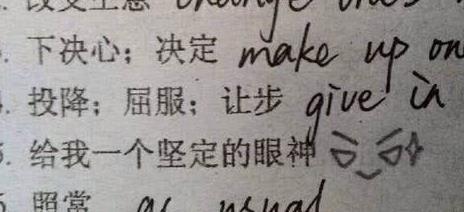 改变主意 change one's
下决心；决定 make up on
投降；屈服；让步 give in
5. 给我一个坚定的眼神
照常 as usual